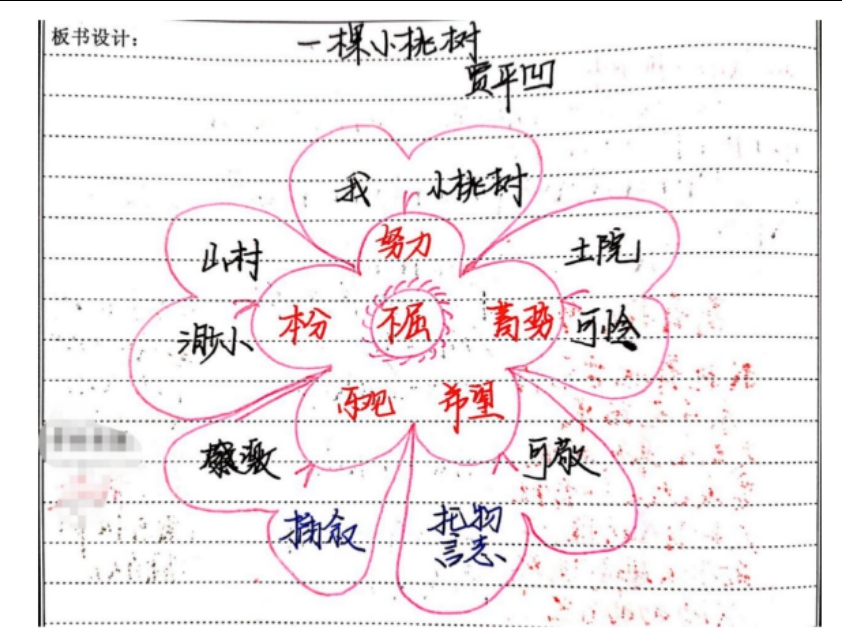 板书设计：
一棵小桃树
贾平凹
我 小桃树
努力
山村 土院
本分 不屈 蓄势
渺小 可怜
乐观 希望
可敬
插叙 托物
言志